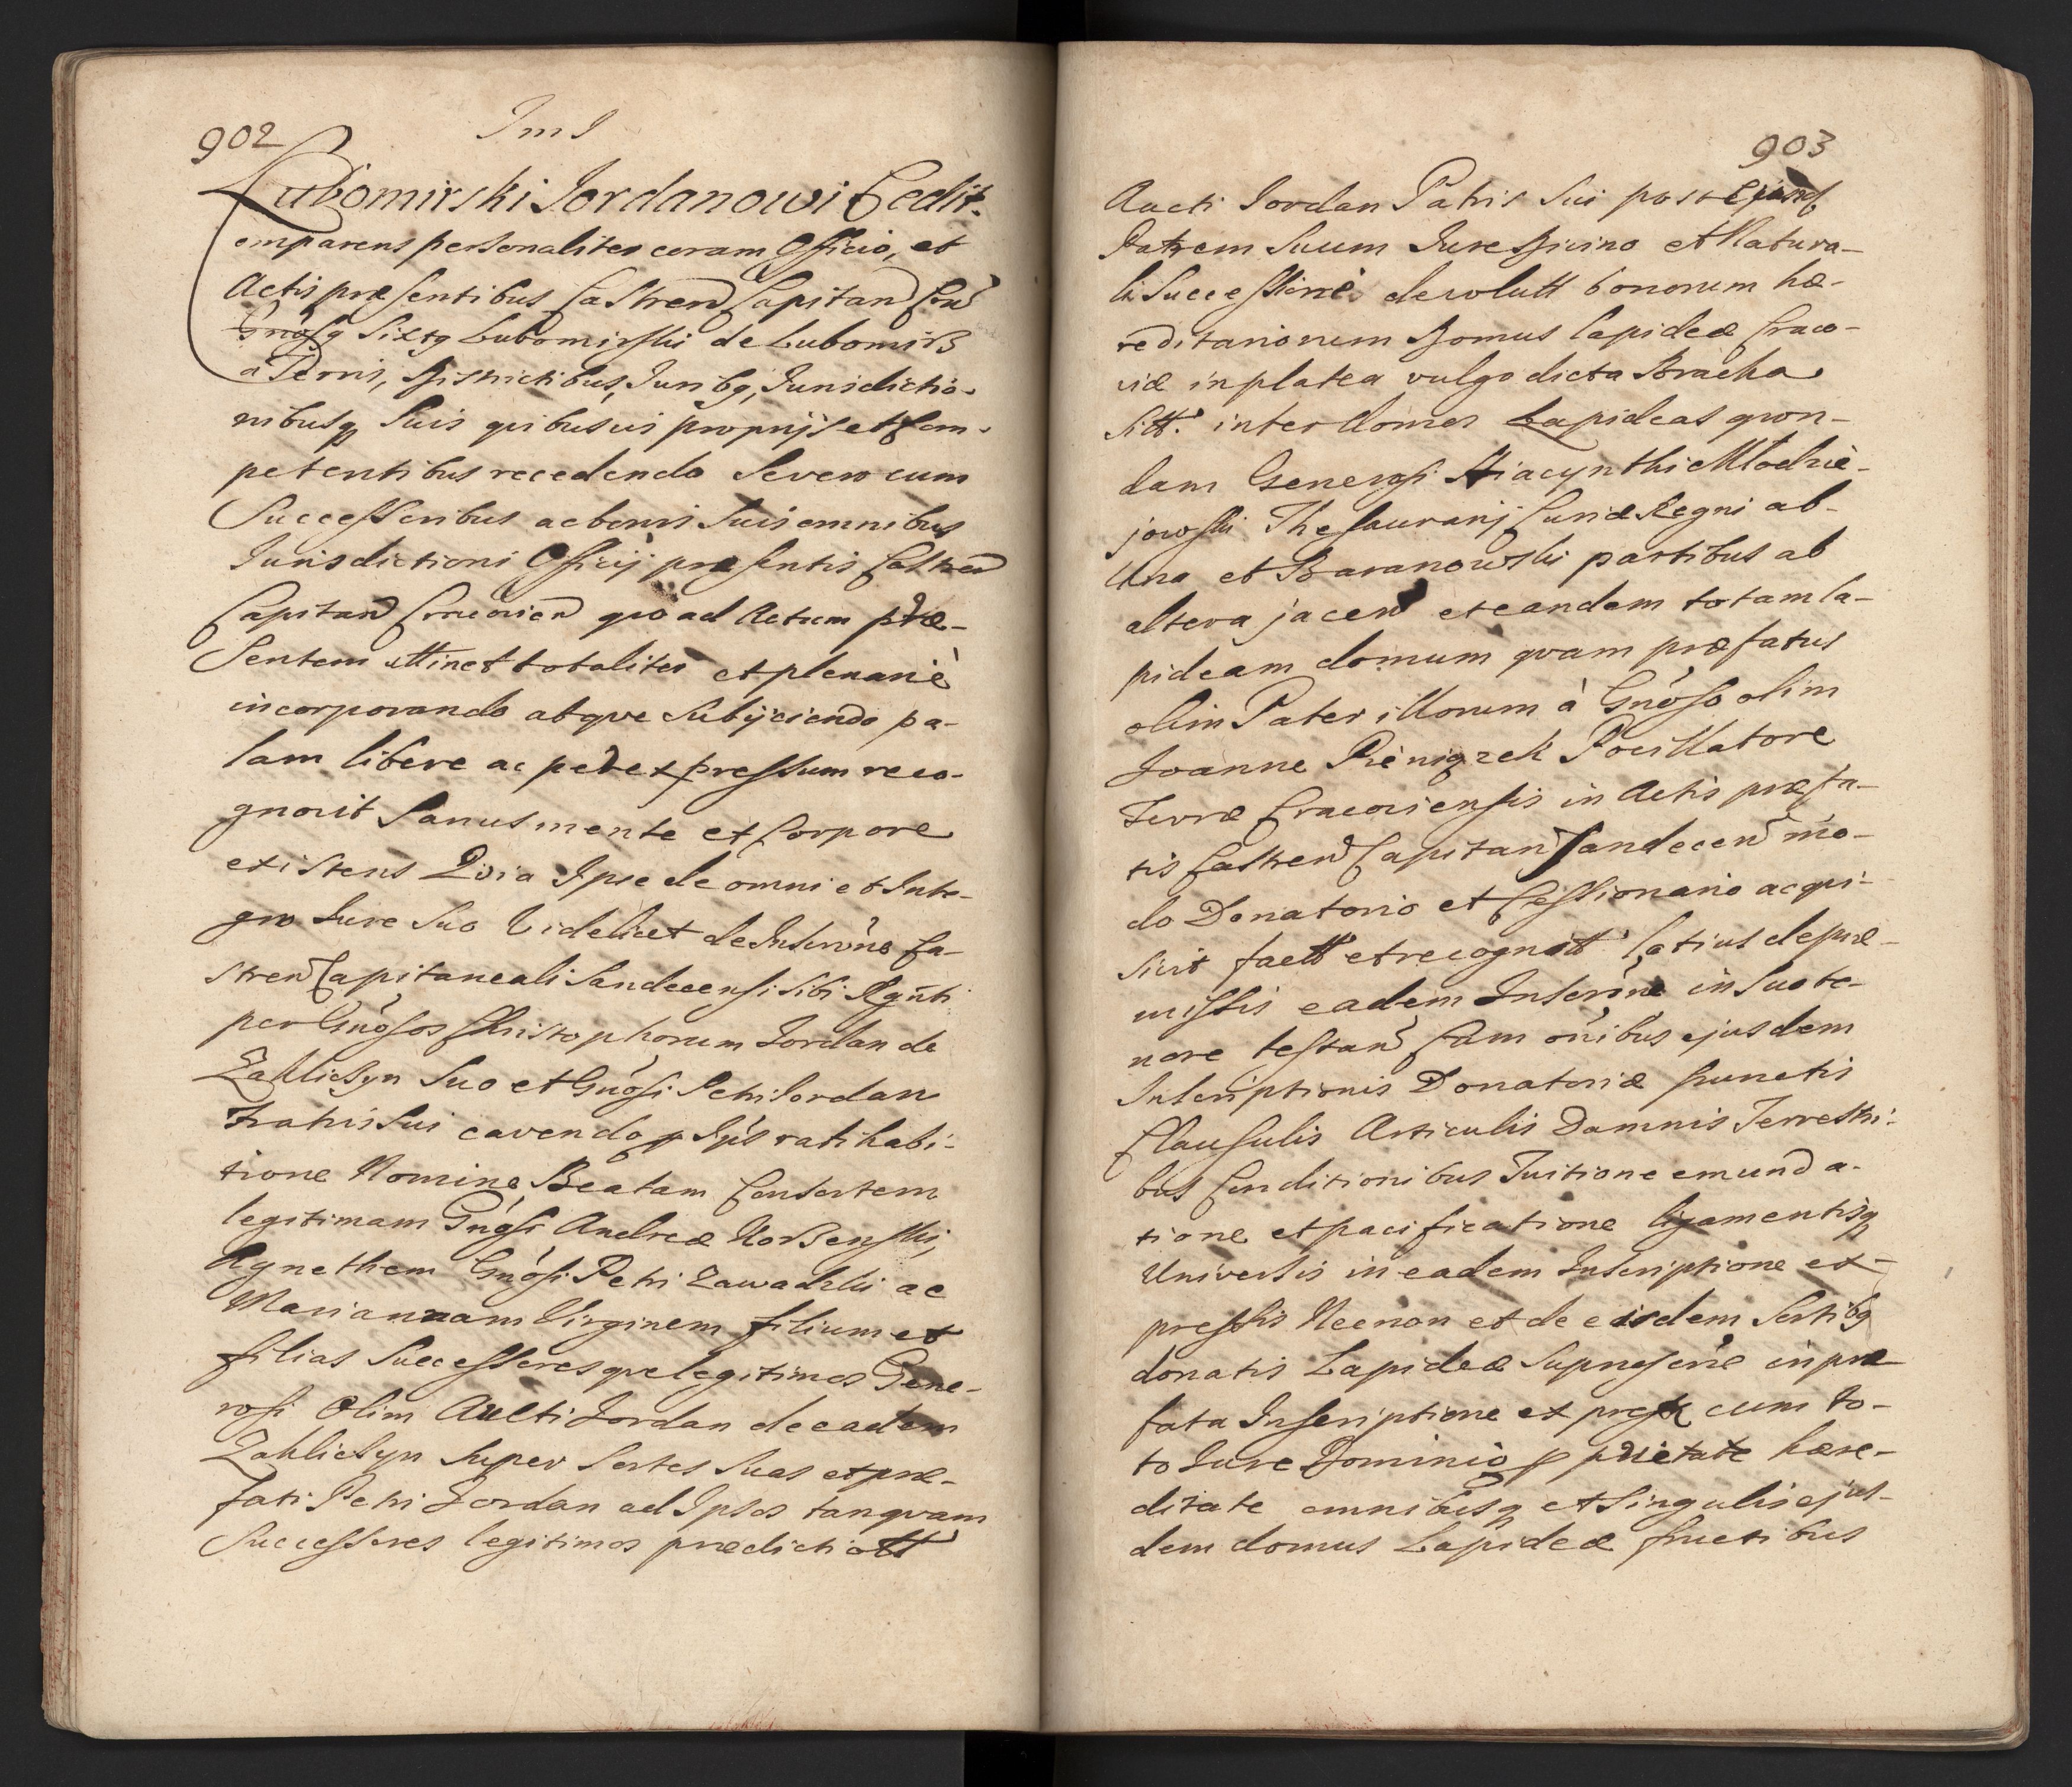 902
Lubomirski Jordanowi Cedit.
omparens personaliter coram Officio, et
Actis præsentibus Castren Capitan Crac
Gnosq Sixtq Lubomirski de Lubomirz
a Terris, Districtibus, Juribq, Jurisdictio-
nibusq Suis quibusvis proprijs et Com-
petentibus recedendo Se vero cum
Successoribus ac bonis Suis omnibus
Jurisdictioni Officij præsentis Castren
Capitan Cracovien quo ad Actum præ-
Sentem attinet totaliter et plenariè
incorporando atque Subijciendo pa-
lam libere ac per expressum reco-
gnovit Sanus mente et Corpore
existens Quia Ipse de omni et Inte-
gro Jure Suo Videlicet de Inscrōne Ca-
stren Capitaneali Sandecensi Sibi Rgnti
per Gnosos Christophorum Jordan de
Zakliczyn Suo et Gnosi Petri Jordan
Fratris Sui cavendo p Ipś ratihabi-
tione Nomine Beatam Consortem
legitimam Gnosi Andreæ Morsenski,
Agnethem Gnosi Petri Zawadzki ac
Mariannam Virginem filium et
filias Successoresque legitimos Gene-
rosi Olim Aucti Jordan de eadem
Zakliczyn Super Sortes Suas et præ-
fati Petri Jordan ad Ipsos tanquam
Successores legitimos prædicti olt
903
Aucti Jordan Patris Sui post Ejusd
Patrem Suum Jure Divino et Natura-
li Successionè devolutt bonorum hæ-
reditariorum Domus lapideæ Craco-
viæ in platea vulgo dicta Bracka
Sitt. inter domos Lapideas quon-
dam Generosi Hiacynthi Młodzie-
jowski Thesaurarij Curiæ Regni ab
Una et Baranowski partibus ab
altera jacen et eandem totam la-
pideam domum quam præfatus
olim Pater illorum à Gnoso olim
Joanne Pieniązek Pocillatore
Terræ Cracoviensis in Actis præfa-
tis Castren Capitan Sandecen mo-
do Donatorio et Cessionario acqui-
sivit factt et recognitt latius de præ-
missis eadem Inscrōne in Suo te-
nore testan Cum oībus ejusdem
Inscriptionis Donatoriæ punctis
Clausulis Articulis Damnis Terrestri-
bus Conditionibus Tuitione emunda-
tione et pacificatione ligamentisq
Universis in eadem Inscriptione ex-
pressis Necnon et de eisdem Sortibq
donatis Lapideæ Supraspcnæ in præ-
fata Inscriptione ex press cum to-
to Jure Dominio pprietate hære-
ditate omnibusq et Singulis ejus-
dem domus Lapideæ fructibus